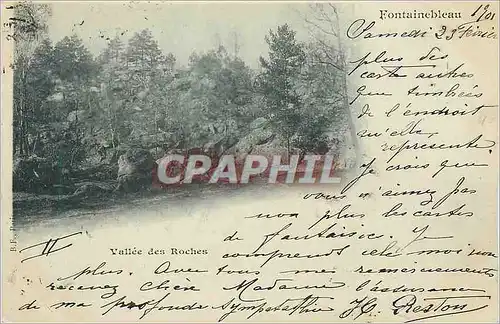 Fontainebleau
1901
Samedi 23 février
plus des
carte autres
que timbrées
de l'endroit
qu'elle
représente.
Je crois que
vous n'aimez pas
non plus les cartes
de fantaisie. Je
comprends cela moi non
plus. Avec tous mes remerciements
recevez chère Madame l'assurance
de ma profonde sympathie
II
Vallée des Roches
CPAPHIL